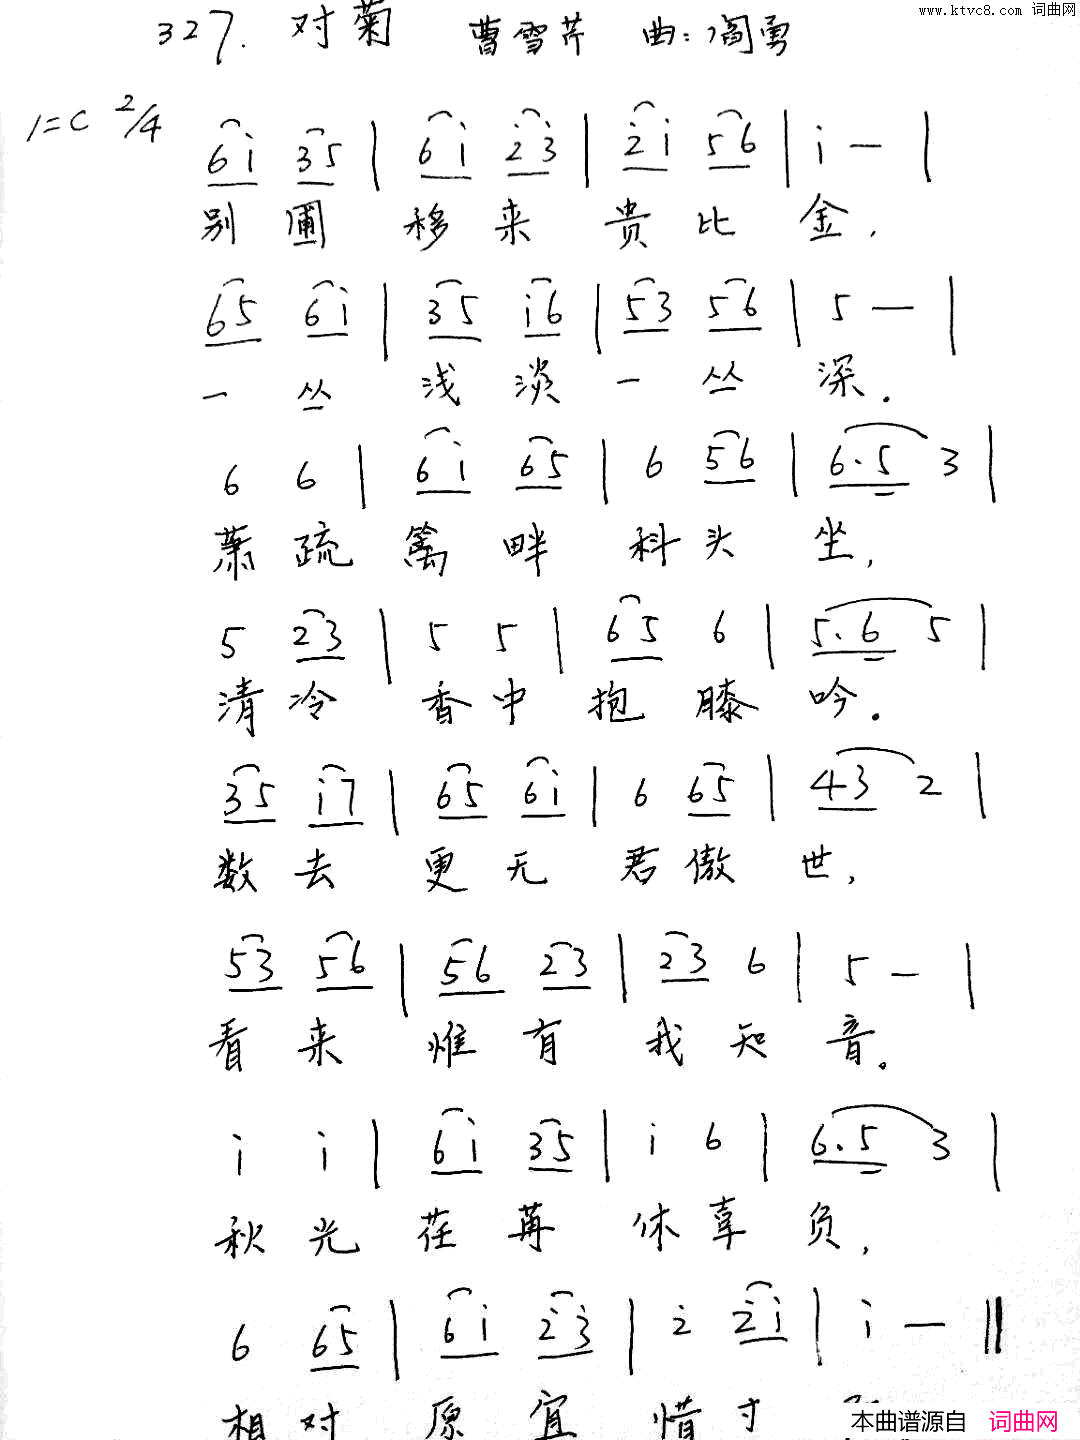 www.ktvc8.com 词曲网
327. 对菊 曹雪芹 曲:阎勇
1=C 2/4
6i 35 | 6i 23 | 2i 56 | i — |
别圃移来贵比金,
65 6i | 35 i6 | 53 56 | 5 — |
一丛浅淡一丛深.
6 6 | 6i 65 | 6 56 | 6.5 3 |
萧疏篱畔科头坐,
5 23 | 5 5 | 65 6 | 5.6 5 |
清冷香中抱膝吟.
35 i7 | 65 6i | 6 65 | 43 2 |
数去更无君傲世,
53 56 | 56 23 | 23 6 | 5 — |
看来惟有我知音。
i i | 6i 35 | i 6 | 6.5 3 |
秋光荏苒休辜负,
6 65 | 6i 23 | 2 2i | i — ‖
相对原宜惜寸
本曲谱源自 词曲网